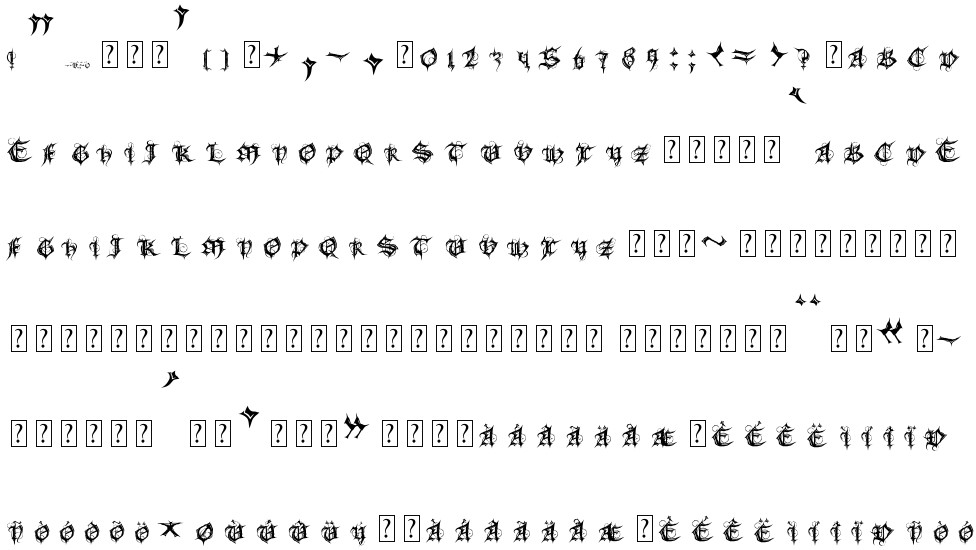 ! " [?] [?] [?] ' ( ) [?] * , - . [?] 0 1 2 3 4 5 6 7 8 9 : ; < = > ? [?] A B C D
E F G H I J K L M N O P Q R S T U V W X Y Z [?] [?] [?] [?] [?] ` A B C D E
F G H I J K L M N O P Q R S T U V W X Y Z [?] [?] [?] ~ [?] [?] [?] [?] [?] [?] [?] [?] [?]
[?] [?] [?] [?] [?] [?] [?] [?] [?] [?] [?] [?] [?] [?] [?] [?] [?] [?] [?] [?] [?] [?] [?] [?] [?] [?] [?] [?] [?] [?] [?] ¨ [?] [?] « [?] -
[?] [?] [?] [?] [?] [?] ´ [?] [?] · [?] [?] [?] » [?] [?] [?] [?] À Á Â Ã Ä Å Æ [?] È É Ê Ë Ì Í Î Ï Ð
Ñ Ò Ó Ô Õ Ö × Ø Ù Ú Û Ü Ý [?] [?] À Á Â Ã Ä Å Æ [?] È É Ê Ë Ì Í Î Ï Ð Ñ Ò Ó